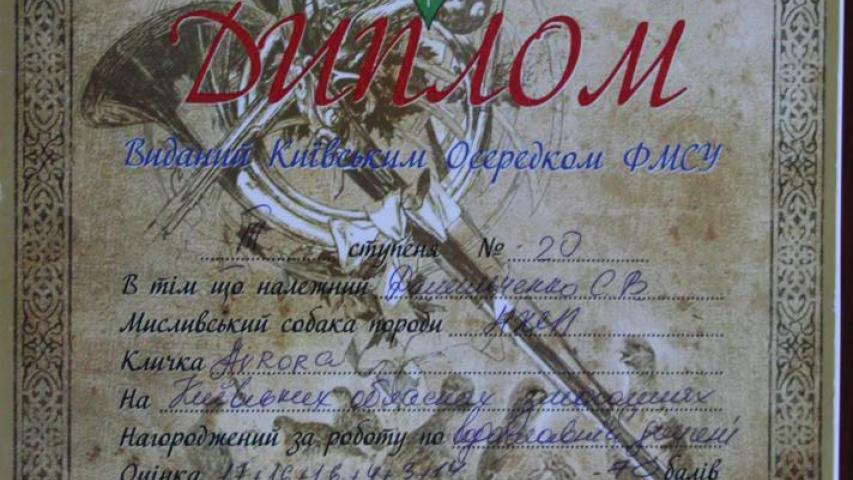 Диплом
Виданий Київським Осередком ФМСУ
III ступеня № 20
В тім що належний С В
Мисливський собака породи
Кличка Avrora
На Київських обласних змаганнях
Нагороджений за роботу по
Оцінка 17+16+16+4+3+14 - 70 балів